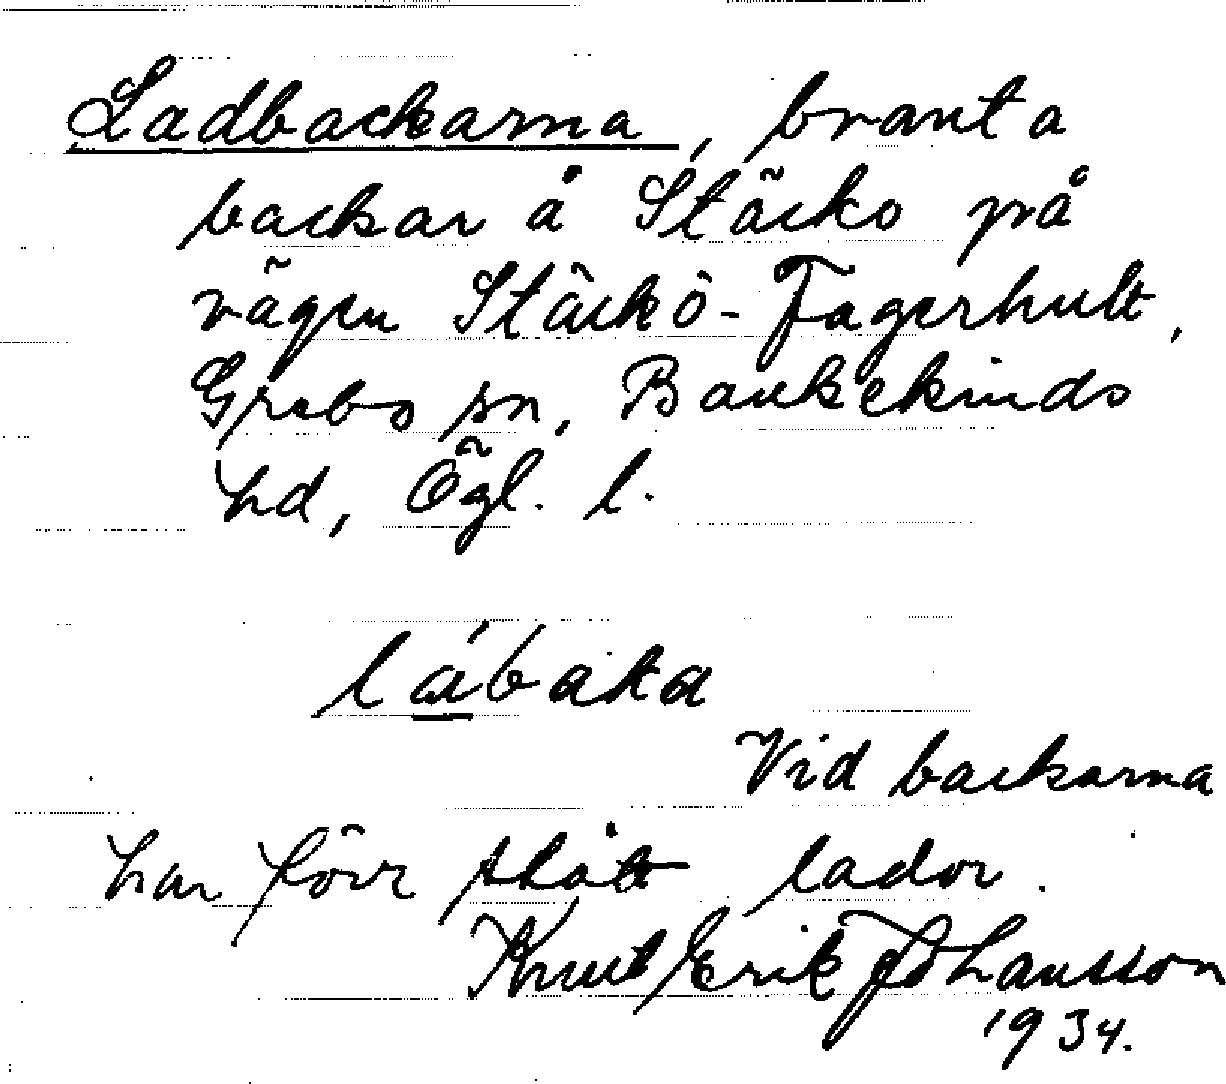 Ladbackarna, branta
backar å Stäcko på
vägen Stäckö-Fagerhult,
Grebo sn, Bankekinds
hd, Ögl. l.
lábaka
Vid backarna
har förr stått lador.
Knut Erik Johansson
1934.